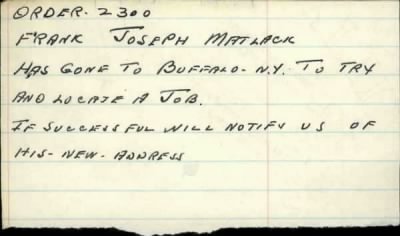 ORDER. 2300
FRANK JOSEPH MATLACK
HAS GONE TO BUFFALO. N.Y. TO TRY
AND LOCATE A JOB.
IF SUCCESSFUL WILL NOTIFY US OF
HIS- NEW- ADDRESS